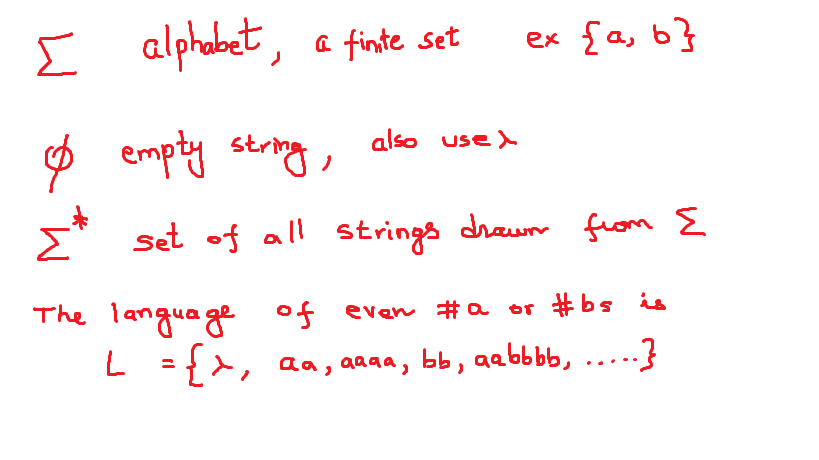 Σ alphabet, a finite set ex {a, b}
φ empty string, also use λ
Σ* set of all strings drawn from Σ
The language of even #a or #bs is
L = {λ, aa, aaaa, bb, aabbbb, .....}